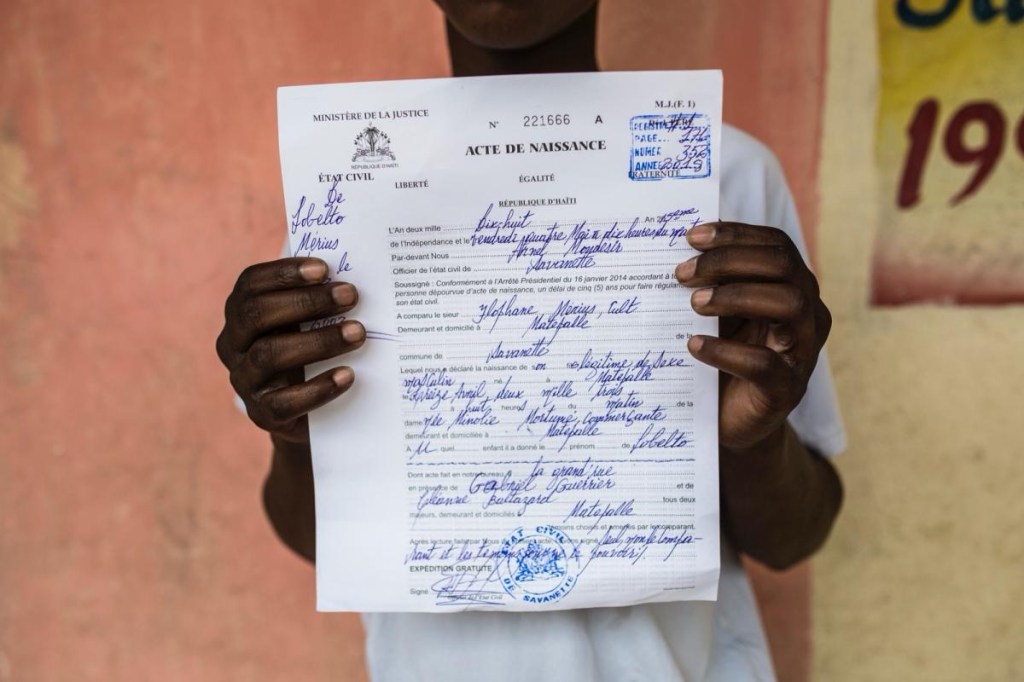 MINISTÈRE DE LA JUSTICE
RÉPUBLIQUE D'HAÏTI
ÉTAT CIVIL
N° 221666 A
ACTE DE NAISSANCE
M.J.(F. 1)
PAGE...
NUMER 356
ANNEE 2019
LIBERTÉ ÉGALITÉ FRATERNITÉ
RÉPUBLIQUE D'HAÏTI
De
Jobelto
Mérius
le
L'An deux mille Dix-huit An
de l'Indépendance et le Vendredi quatre Mai à dix heures du mat
Par-devant Nous
Officier de l'état civil de Savanette
Soussigné : Conformément à l'Arrêté Présidentiel du 16 janvier 2014 accordant à
personne dépourvue d'acte de naissance, un délai de cinq (5) ans pour faire
son état civil.
A comparu le sieur Ilophane Mérius, Cult
Demeurant et domicilié à Matepalle
commune de Savanette de la
Lequel nous a déclaré la naissance de son légitime de Sexe
masculin né à Matepalle
le treize Avril deux mille trois
à huit heures du matin de la
dame née Minotie Mortune, commerçante
demeurant et domiciliée à Matepalle
A quel enfant il a donné le prénom de Jobelto
Dont acte fait en notre bureau à la grand'rue
en présence de Gabriel Guerrier et de
Baltazard tous deux
majeurs, demeurant et domiciliés Matepalle
témoins choisis et amenés par le comparant.
Après lecture faite
EXPÉDITION GRATUITE
Signé
ETAT CIVIL
DE SAVANETTE
199